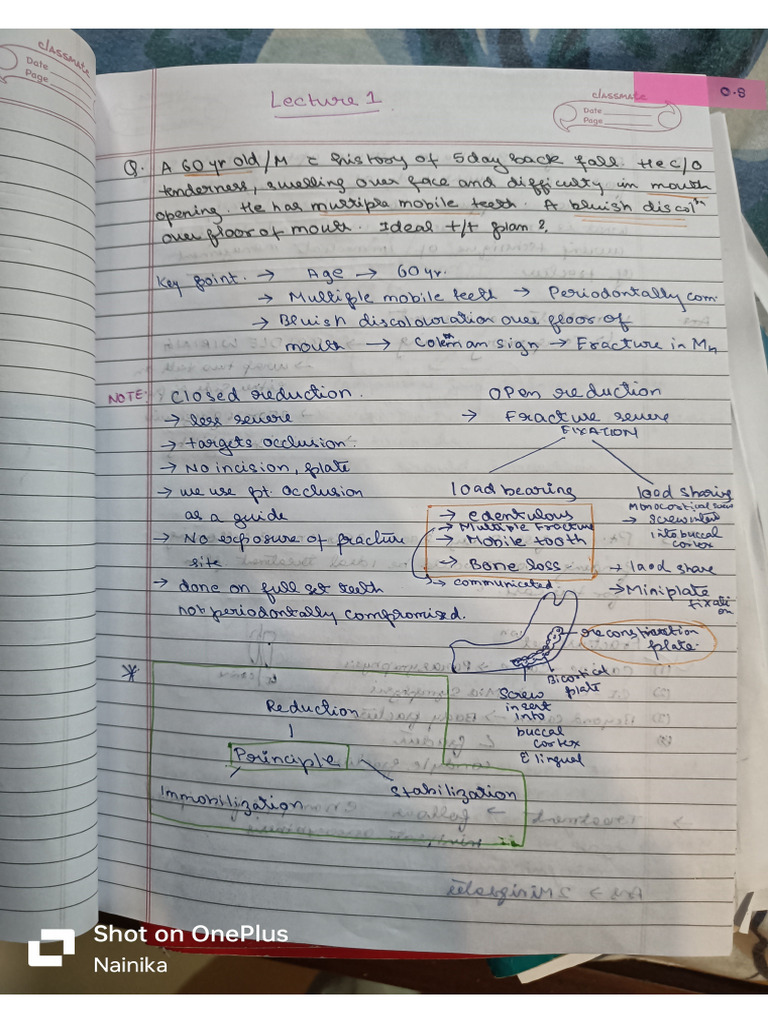 classmate
Date
Page
classmate
Date
Page
O.S
Lecture 1
Q. A 60 yr old/M c history of 5day back fall. He c/o
tenderness, swelling over face and difficulty in mouth
opening. He has multiple mobile teeth. A bluish discolⁿ
over floor of mouth. Ideal t/t plan?
Key point. → Age → 60 yr.
→ Multiple mobile teeth → Periodontally com.
→ Bluish discolouration over floor of
mouth → Coleman sign → Fracture in Mn
NOTE: Closed reduction.
→ less severe
→ targets occlusion.
→ No incision, plate
→ we use pt. occlusion
as a guide
→ No exposure of fracture
site
→ done on full set teeth
not periodontally compromised.
Open reduction
→ Fracture severe
FIXATION
load bearing
→ edentulous
→ Multiple Fracture
→ Mobile tooth
→ Bone loss
→ communicated.
load sharing
Monocortical screw
→ Screw insert
into buccal
cortex
→ load share
→ Miniplate
fixati
on
→ reconstruction
plate.
Bicortical
plate
Screw
insert
into
buccal
cortex
& lingual
*
Reduction
Principle
Immobilization
Stabilization
Shot on OnePlus
Nainika